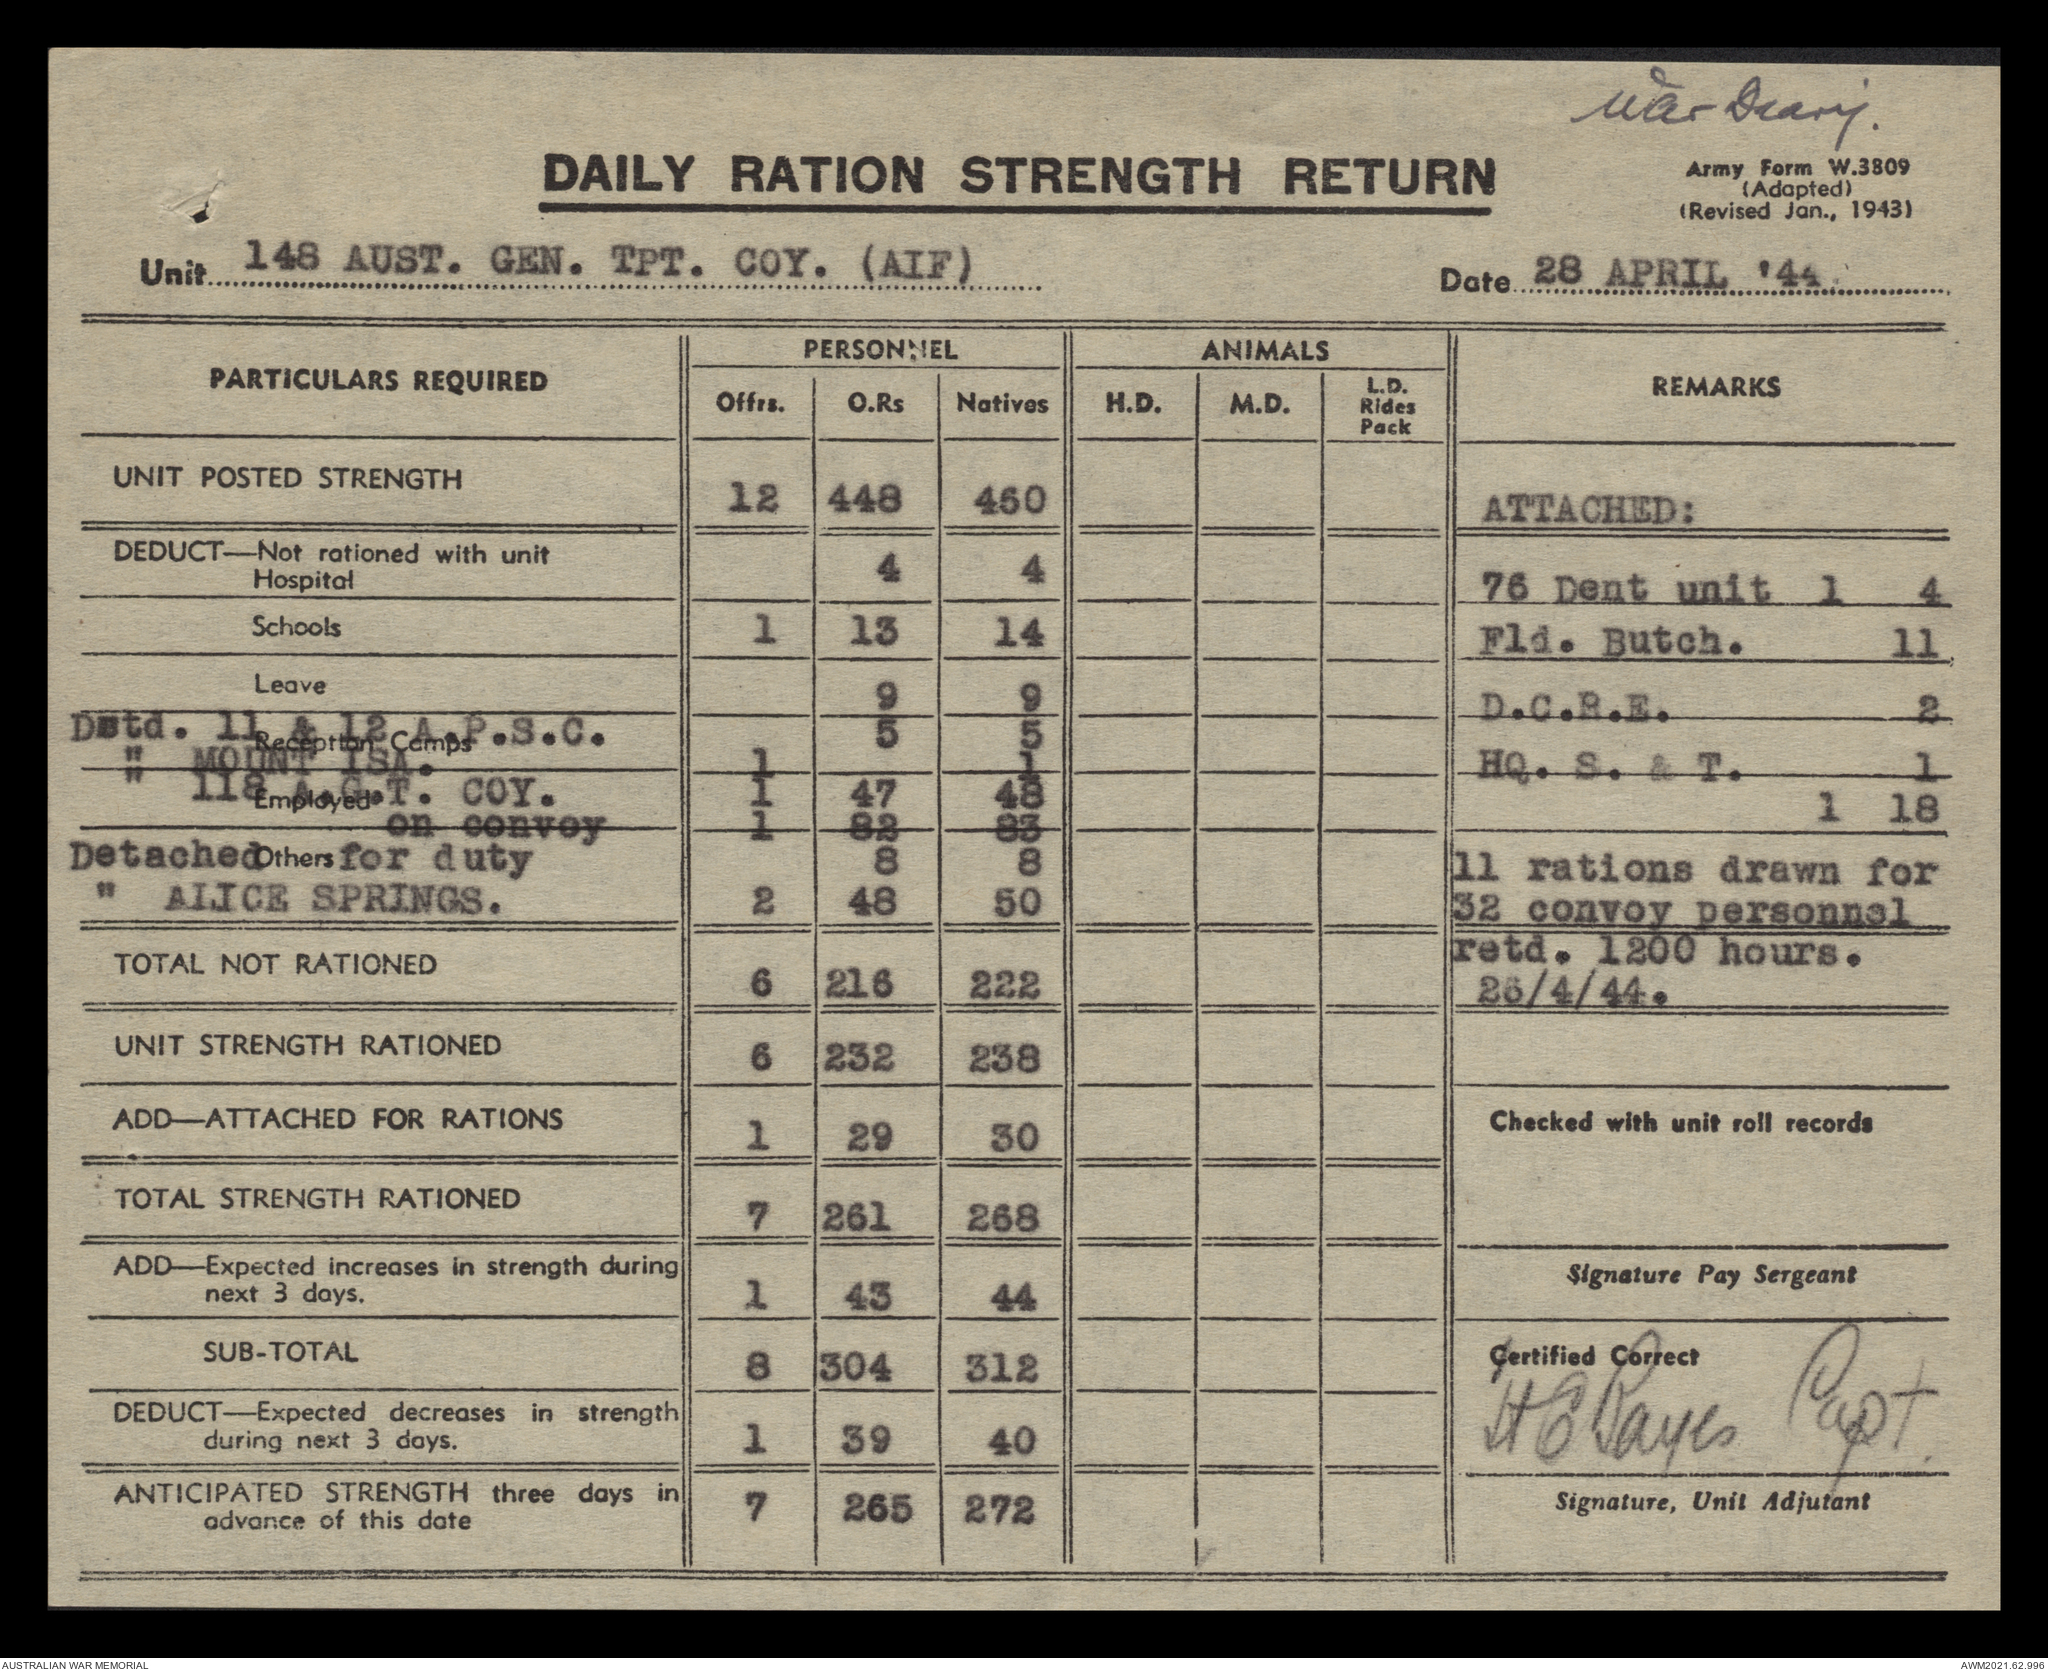 War Diary.
DAILY RATION STRENGTH RETURN
Army Form W.3809
(Adapted)
(Revised Jan., 1943)
Unit 148 AUST. GEN. TPT. COY. (AIF)
Date 28 APRIL '44.
PARTICULARS REQUIRED PERSONNEL ANIMALS REMARKS
Offrs. O.Rs Natives H.D. M.D. L.D. Rides Pack
UNIT POSTED STRENGTH 12 448 460 ATTACHED:
DEDUCT—Not rationed with unit
Hospital 4 4 76 Dent unit 1 4
Schools 1 13 14 Fld. Butch. 11
Leave 9 9 D.C.R.E. 2
Dstd. 11 & 12 A.P.S.C. 5 5
Reception Camps
" MOUNT ISA. 1 1 HQ. S. & T. 1
" 118 A.G.T. COY. 1 47 48 1 18
Employed
on convoy 1 82 83
Detached for duty 8 8 11 rations drawn for
Others
" ALICE SPRINGS. 2 48 50 32 convoy personnel
TOTAL NOT RATIONED 6 216 222 retd. 1200 hours.
26/4/44.
UNIT STRENGTH RATIONED 6 232 238
ADD—ATTACHED FOR RATIONS 1 29 30 Checked with unit roll records
TOTAL STRENGTH RATIONED 7 261 268
ADD—Expected increases in strength during
next 3 days. 1 43 44 Signature Pay Sergeant
SUB-TOTAL 8 304 312 Certified Correct
DEDUCT—Expected decreases in strength
during next 3 days. 1 39 40 H E Bayes Capt.
ANTICIPATED STRENGTH three days in
advance of this date 7 265 272 Signature, Unit Adjutant
AUSTRALIAN WAR MEMORIAL
AWM2021.62.996